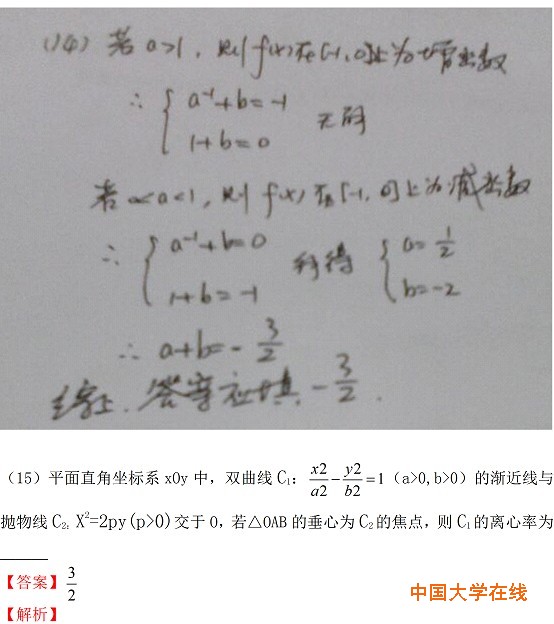 (14) 若a>1, 则f(x)在[-1,0]上为增函数
∴ { a⁻¹+b=-1
1+b=0 无解
若0<a<1, 则f(x)在[-1,0]上为减函数
∴ { a⁻¹+b=0
1+b=-1 解得 { a=1/2
b=-2
∴ a+b=-3/2
综上, 答案应填, -3/2.
(15) 平面直角坐标系xOy中, 双曲线C₁: x2/a2-y2/b2=1 (a>0,b>0) 的渐近线与
抛物线C₂: X²=2py(p>0)交于O, 若△OAB的垂心为C₂的焦点, 则C₁的离心率为
【答案】3/2
中国大学在线
【解析】